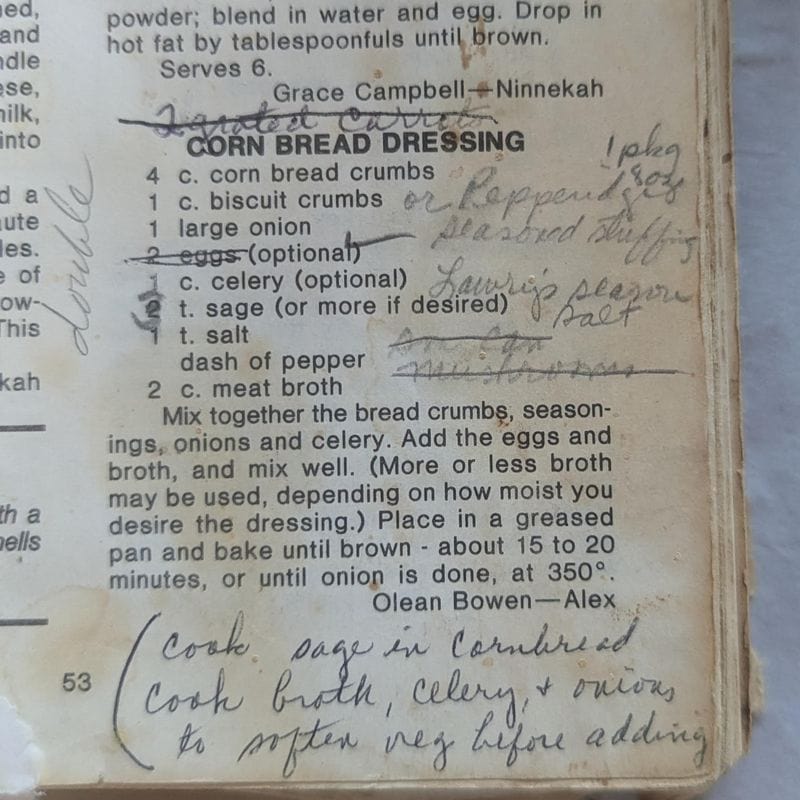 ed,
and
ndle
ese,
nilk,
into
d a
ute
les.
e of
ow-
This
kah
th a
nells
double
powder; blend in water and egg. Drop in
hot fat by tablespoonfuls until brown.
Serves 6.
Grace Campbell—Ninnekah
2 grated carrots
CORN BREAD DRESSING
4 c. corn bread crumbs 1 pkg 8 oz
1 c. biscuit crumbs or Pepperidge
1 large onion seasoned stuffing
2 eggs (optional)
1 c. celery (optional) Lawry's season
2 t. sage (or more if desired) salt
1 t. salt
dash of pepper mushrooms
2 c. meat broth
Mix together the bread crumbs, season-
ings, onions and celery. Add the eggs and
broth, and mix well. (More or less broth
may be used, depending on how moist you
desire the dressing.) Place in a greased
pan and bake until brown - about 15 to 20
minutes, or until onion is done, at 350°.
Olean Bowen—Alex
(cook sage in cornbread
cook broth, celery, + onions
to soften veg before adding
53